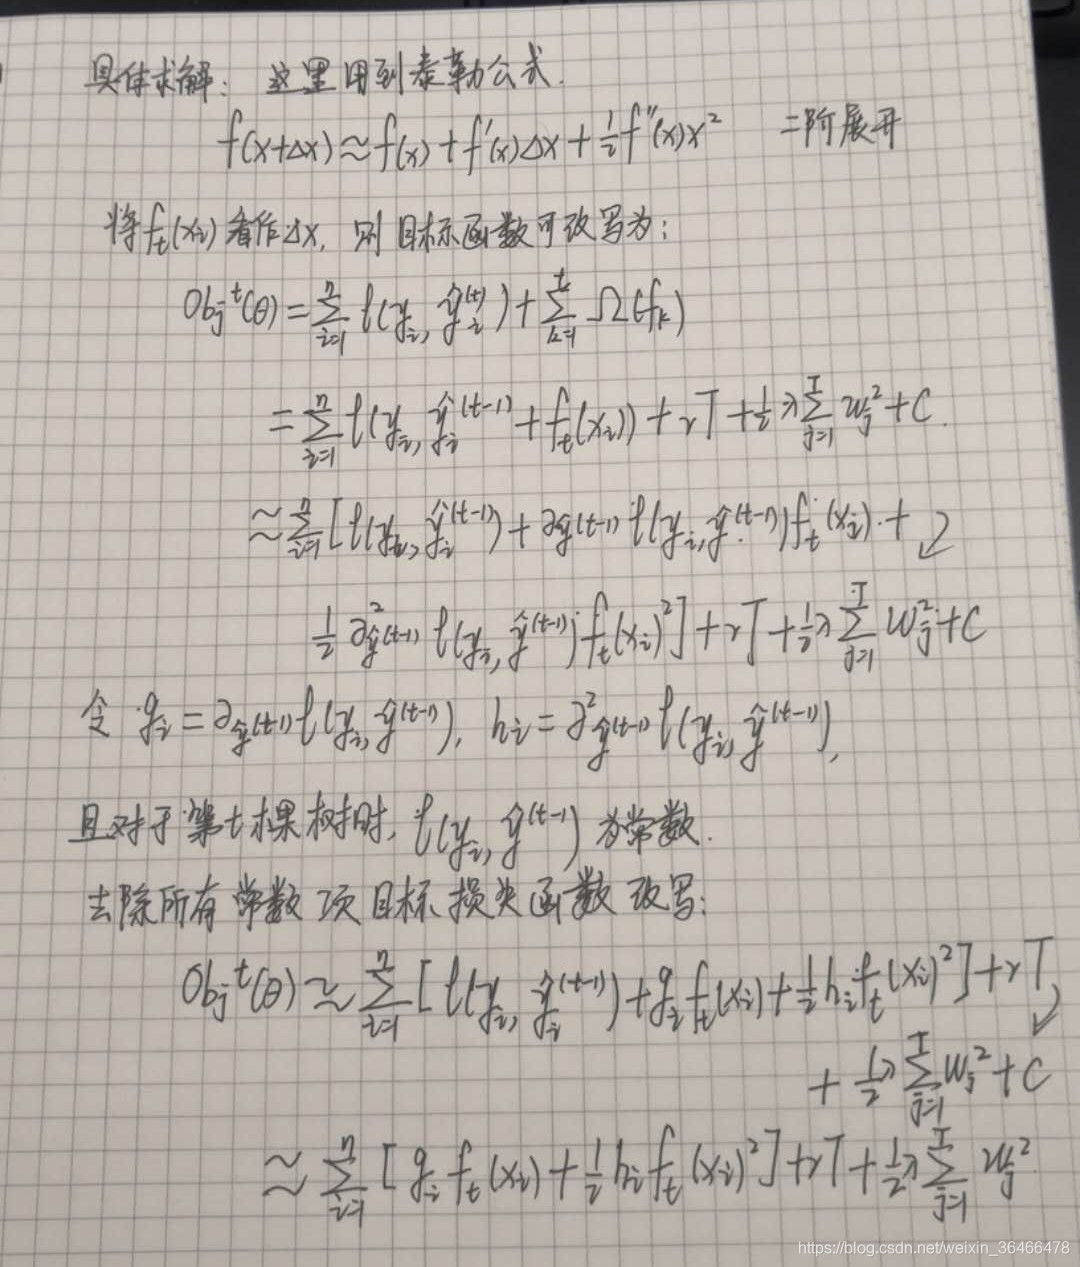 具体求解: 这里用到泰勒公式.
f(x+Δx)≈f(x)+f'(x)Δx+½f''(x)x² 二阶展开
将f_t(x_i)看作Δx, 则目标函数可改写为:
Obj^t(θ)=∑_{i=1}^n l(y_i, ŷ_i^{(t)})+∑_{k=1}^t Ω(f_k)
=∑_{i=1}^n l(y_i, ŷ_i^{(t-1)}+f_t(x_i))+rT+½λ∑_{j=1}^T w_j²+C.
≈∑_{i=1}^n[l(y_i, ŷ_i^{(t-1)})+∂_{ŷ(t-1)} l(y_i, ŷ^{(t-1)})f_t(x_i)+
½∂²_{ŷ(t-1)} l(y_i, ŷ^{(t-1)})f_t(x_i)²]+rT+½λ∑_{j=1}^T w_j²+C
令 g_i=∂_{ŷ(t-1)} l(y_i, ŷ^{(t-1)}), h_i=∂²_{ŷ(t-1)} l(y_i, ŷ^{(t-1)}),
且对于第t棵树时, l(y_i, ŷ^{(t-1)}) 为常数.
去除所有常数项目标损失函数改写:
Obj^t(θ)≈∑_{i=1}^n[l(y_i, ŷ_i^{(t-1)})+g_i f_t(x_i)+½h_i f_t(x_i)²]+rT
+½λ∑_{j=1}^T w_j²+C
≈∑_{i=1}^n[g_i f_t(x_i)+½h_i f_t(x_i)²]+rT+½λ∑_{j=1}^T w_j²
https://blog.csdn.net/weixin_36466478